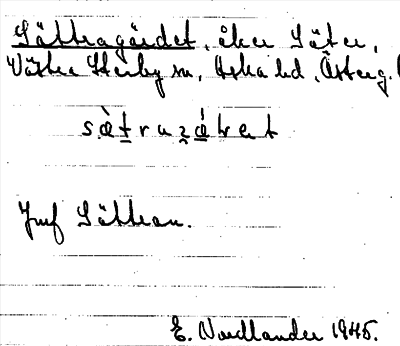 Sättragärdet, åker Säter,
Västra Stenby sn, Aska hd, Österg.
Jmf Sättran.
E. Nordlander 1945.